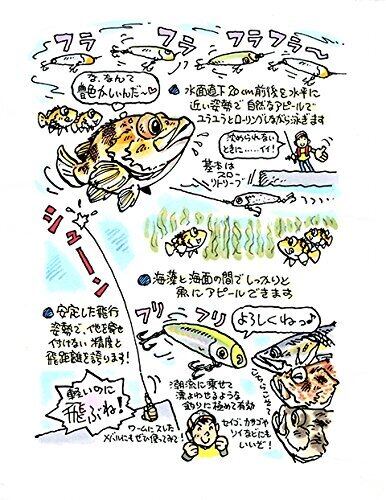 フラ フラ フラフラ〜
な、なんて
艶めかしいんだ〜♡
水面直下20cm前後を水平に
近い姿勢で自然なアピールで
ユラユラとロリングしながら泳ぎます
ときに……イイ!
基本は
スロー
リトリーブ
シューン
海藻と海面の間でしっかりと
魚にアピールできます
安定した飛行
姿勢で、他を寄せ
付けない精度と
飛距離を誇ります!
フリ フリ
よろしくねっ♪
軽いのに
飛ぶね!
潮流に乗せて
漂よわせるような
釣りに極めて有効
ワームにスレた
メバルにもぜひ使ってみて!
セイゴ、カサゴや
ソイなどにも
いいぞ!